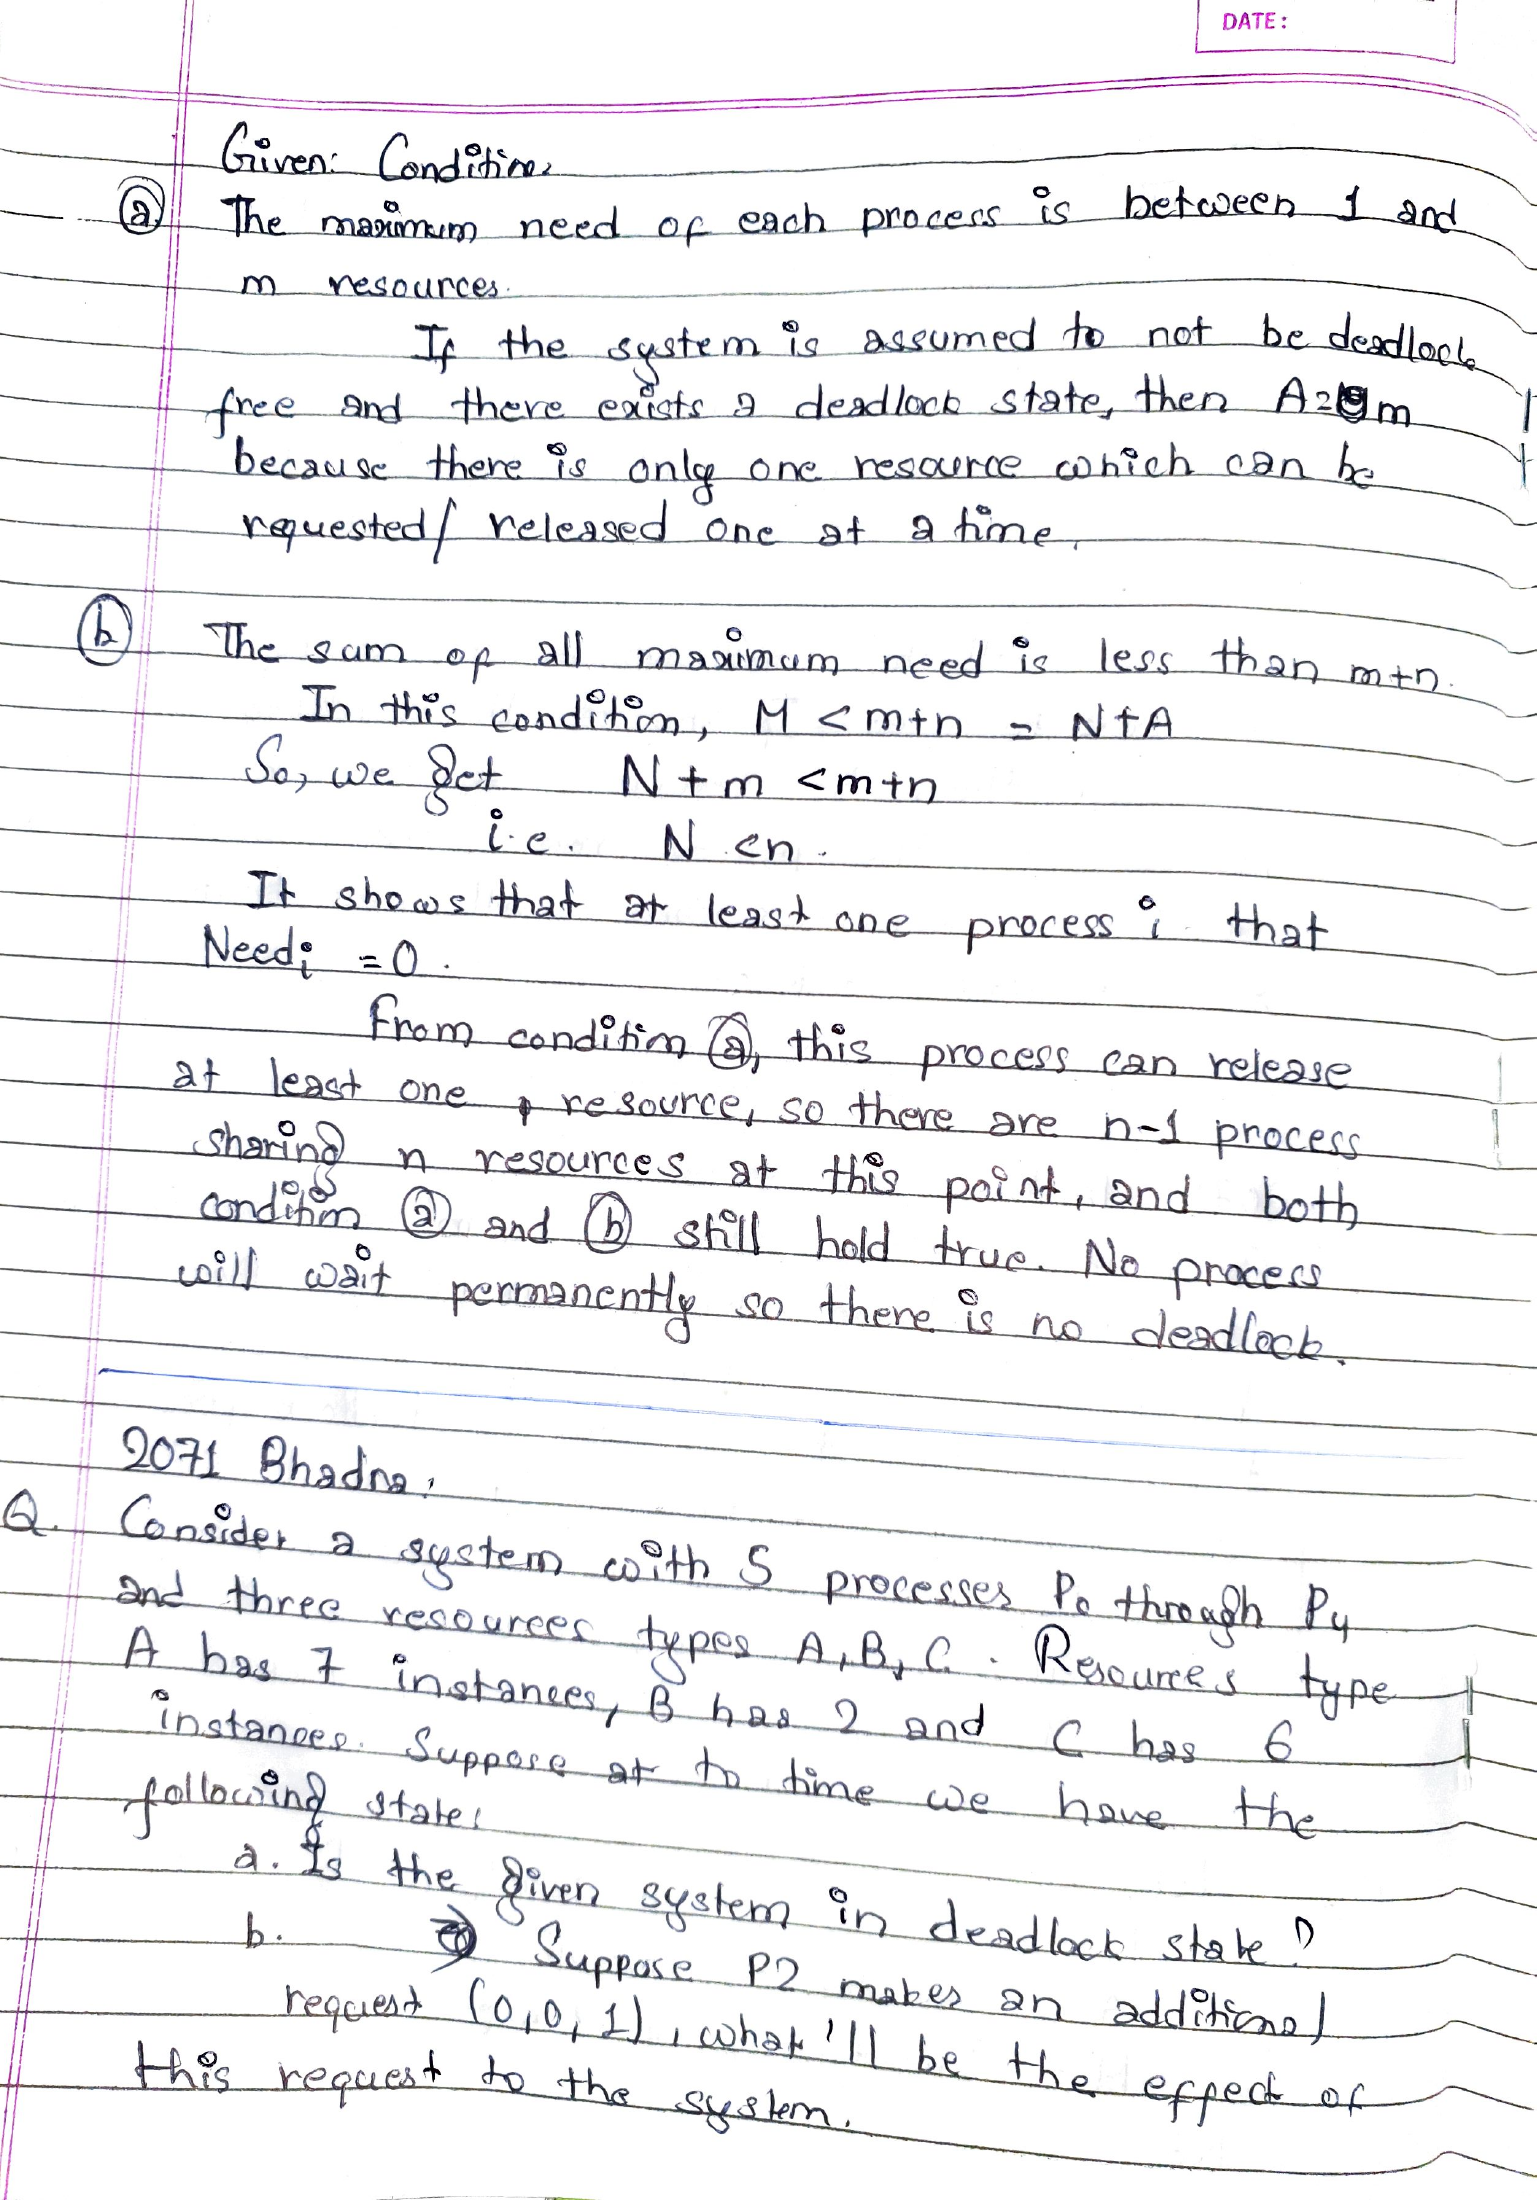 DATE:
Given: Condition:
(a) The maximum need of each process is between 1 and
m resources.
If the system is assumed to not be deadlock
free and there exists a deadlock state, then A=m
because there is only one resource which can be
requested/ released one at a time.
(b) The sum of all maximum need is less than m+n.
In this condition, M < m+n = N+A
So, we get N + m < m+n
i.e. N < n.
It shows that at least one process i that
Needi = 0.
From condition (a), this process can release
at least one resource, so there are n-1 process
sharing n resources at this point, and both
condition (a) and (b) still hold true. No process
will wait permanently so there is no deadlock.
2071 Bhadra.
Q. Consider a system with 5 processes P0 through P4
and three resources types A, B, C. Resources type
A has 7 instances, B has 2 and C has 6
instances. Suppose at to time we have the
following state:
a. Is the given system in deadlock state?
b. Suppose P2 makes an additional
request (0,0,1), what'll be the effect of
this request to the system.